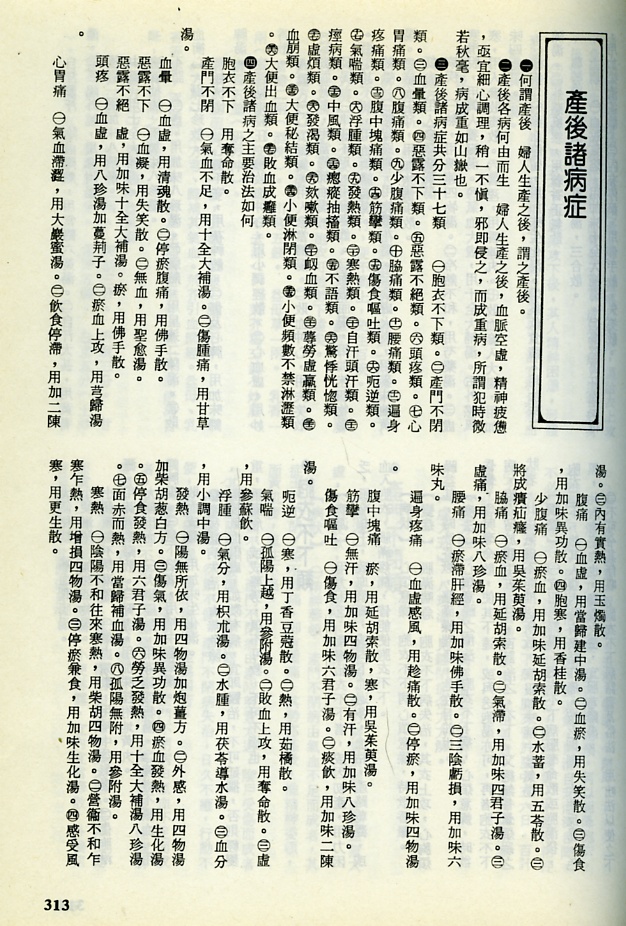 產後諸病症
㊀何謂產後　婦人生產之後，謂之產後。
㊁產後各病何由而生　婦人生產之後，血脈空虛，精神疲憊
，亟宜細心調理，稍一不愼，邪即侵之，而成重病，所謂犯時微
若秋毫，病成重如山嶽也。
㊂產後諸病症共分三十七類　㊀胞衣不下類。㊁產門不閉
類。㊂血暈類。㊃惡露不下類。㊄惡露不絕類。㊅頭疼類。㊆心
胃痛類。㊇腹痛類。㊈少腹痛類。㊉脇痛類。㊉腰痛類。遍身
疼痛類。腹中塊痛類。筋攣類。傷食嘔吐類。呃逆類。
氣喘類。浮腫類。發熱類。寒熱類。自汗頭汗類。
痙病類。中風類。瘛瘲抽搐類。不語類。驚悸恍惚類。
虛煩類。發渴類。欬嗽類。衂血類。蓐勞虛羸類。
血崩類。大便秘結類。小便淋閉類。小便頻數不禁淋瀝類
。大便出血類。敗血成癰類。
㊃產後諸病之主要治法如何
胞衣不下　用奪命散。
產門不閉　㊀氣血不足，用十全大補湯。㊁傷腫痛，用甘草
湯。
血暈　㊀血虛，用清魂散。㊁停瘀腹痛，用佛手散。
惡露不下　㊀血凝，用失笑散。㊁無血，用聖愈湯。
惡露不絕　虛，用加味十全大補湯。瘀，用佛手散。
頭疼　㊀血虛，用八珍湯加蔓荊子。㊁瘀血上攻，用芎歸湯
。
心胃痛　㊀氣血滯澀，用大巖蜜湯。㊁飲食停滯，用加二陳
湯。㊂內有實熱，用玉燭散。
腹痛　㊀血虛，用當歸建中湯。㊁血瘀，用失笑散。㊂傷食
，用加味異功散。㊃胞寒，用香桂散。
少腹痛　㊀瘀血，用加味延胡索散。㊁水蓄，用五苓散。㊂
將成癀疝癥，用吳茱萸湯。
脇痛　㊀瘀血，用延胡索散。㊁氣滯，用加味四君子湯。㊂
虛痛，用加味八珍湯。
腰痛　㊀瘀滯肝經，用加味佛手散。㊁三陰虧損，用加味六
味丸。
遍身疼痛　㊀血虛感風，用趁痛散。㊁停瘀，用加味四物湯
。
腹中塊痛　瘀，用延胡索散，寒，用吳茱萸湯。
筋攣　㊀無汗，用加味四物湯。㊁有汗，用加味八珍湯。
傷食嘔吐　㊀傷食，用加味六君子湯。㊁痰飲，用加味二陳
湯。
呃逆　㊀寒，用丁香豆蔻散。㊁熱，用茹橘散。
氣喘　㊀孤陽上越，用參附湯。㊁敗血上攻，用奪命散。㊂虛
，用參蘇飲。
浮腫　㊀氣分，用枳朮湯。㊁水腫，用茯苓導水湯。㊂血分
，用小調中湯。
發熱　㊀陽無所依，用四物湯加炮薑方。㊁外感，用四物湯
加柴胡葱白方。㊂傷氣，用加味異功散。㊃瘀血發熱，用生化湯
。㊄停食發熱，用六君子湯。㊅勞乏發熱，用十全大補湯八珍湯
。㊆面赤而熱，用當歸補血湯。㊇孤陽無附，用參附湯。
寒熱　㊀陰陽不和往來寒熱，用柴胡四物湯。㊁營衞不和乍
寒乍熱，用增損四物湯。㊂停瘀兼食，用加味生化湯。㊃感受風
寒，用更生散。
313